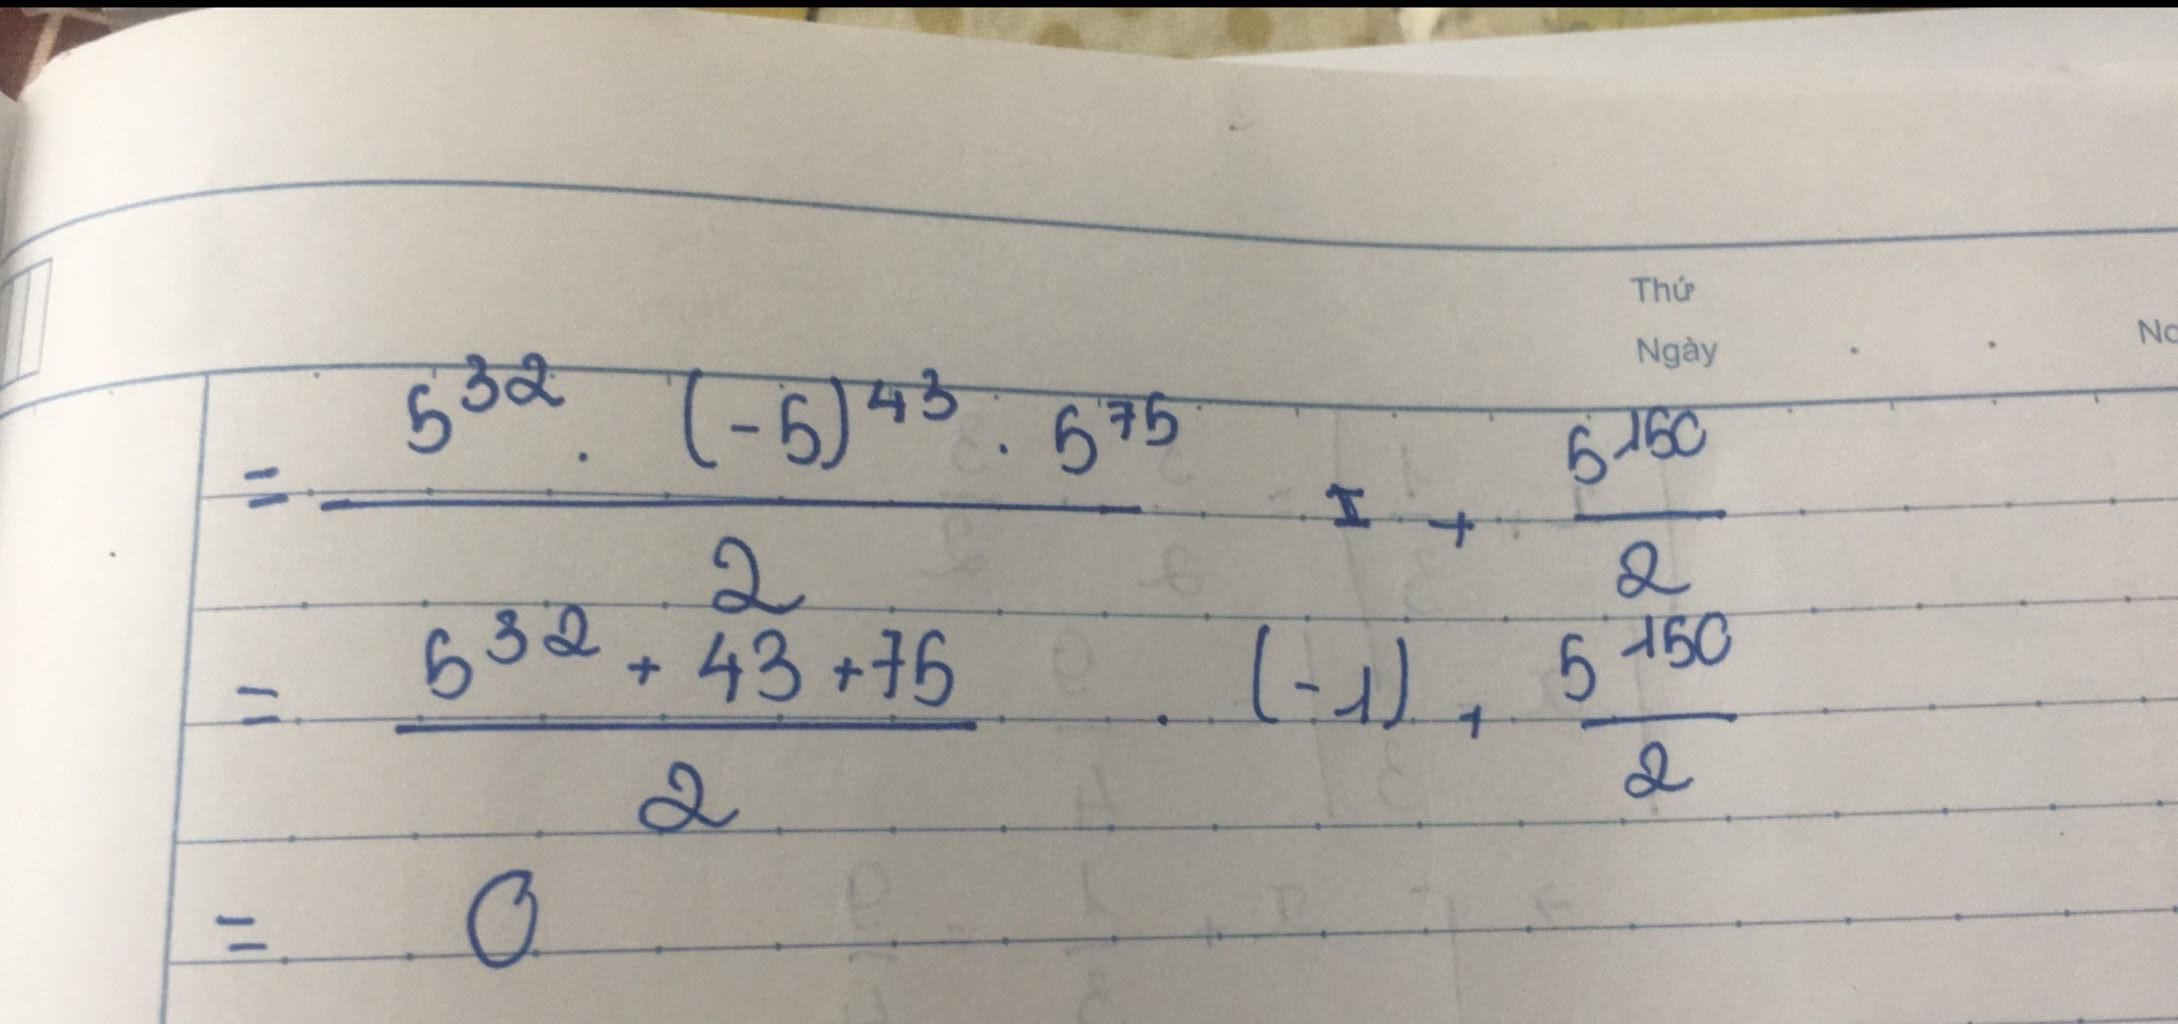 Thứ
Ngày
No
= (5^32 . (-5)^43 . 5^75) / 2 + 5^150 / 2
= (5^32 + 43 + 75) / 2 . (-1) + 5^150 / 2
= 0